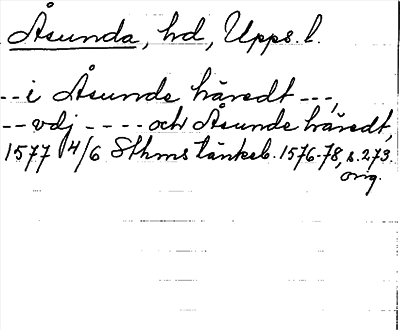 Åsunda, hd, Upps. l.
-- i Åsunde häredt ---,
-- vdj ---- och Åsunde häredt,
1577 4/6 Sthms tänkeb. 1576-78, s. 273.
orig.